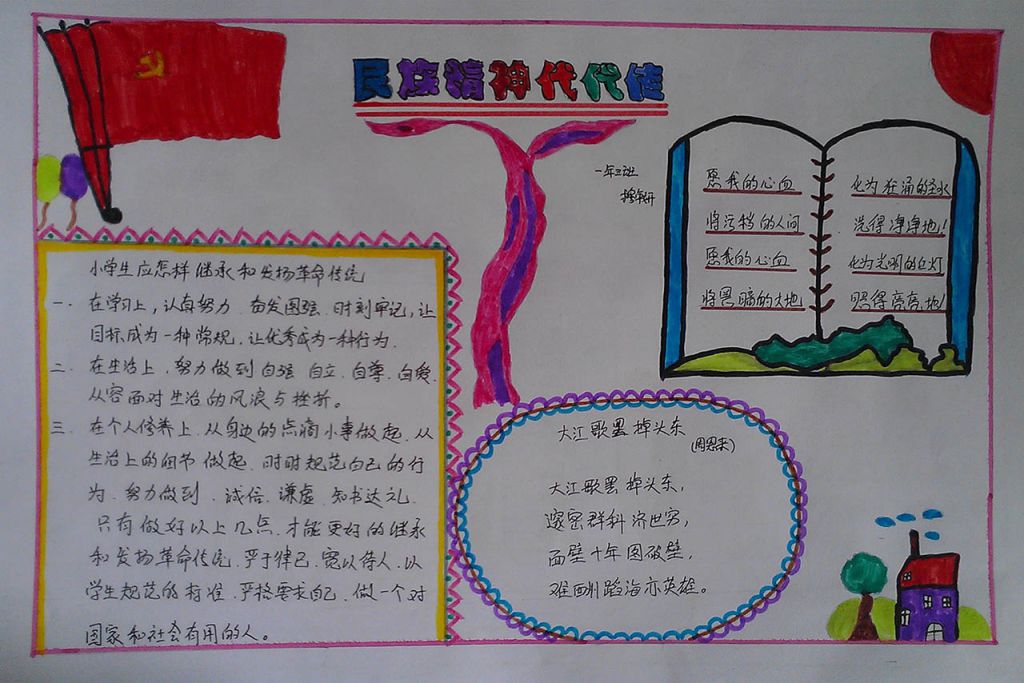 民族精神代代传
一年三班
小学生应怎样继承和发扬革命传统
一、在学习上,认真努力、奋发图强、时刻牢记,让
目标成为一种常规,让优秀成为一种行为.
二、在生活上,努力做到自强 自立、自尊、自爱,
从容面对生活的风浪与挫折。
三、在个人修养上、从身边的点滴小事做起、从
生活上的细节做起、时时规范自己的行
为、努力做到、诚信、谦虚、知书达礼、
只有做好以上几点,才能更好的继承
和发扬革命传统、严于律己、宽以待人、以
学生规范的标准、严格要求自己、做一个对
国家和社会有用的人。
愿我的心血
将污秽的人间
愿我的心血
将黑暗的大地
化为汹涌的圣水
洗得净净地!
化为光明的红灯
照得亮亮地!
大江歌罢掉头东
(周恩来)
大江歌罢掉头东,
邃密群科济世穷,
面壁十年图破壁,
难酬蹈海亦英雄。